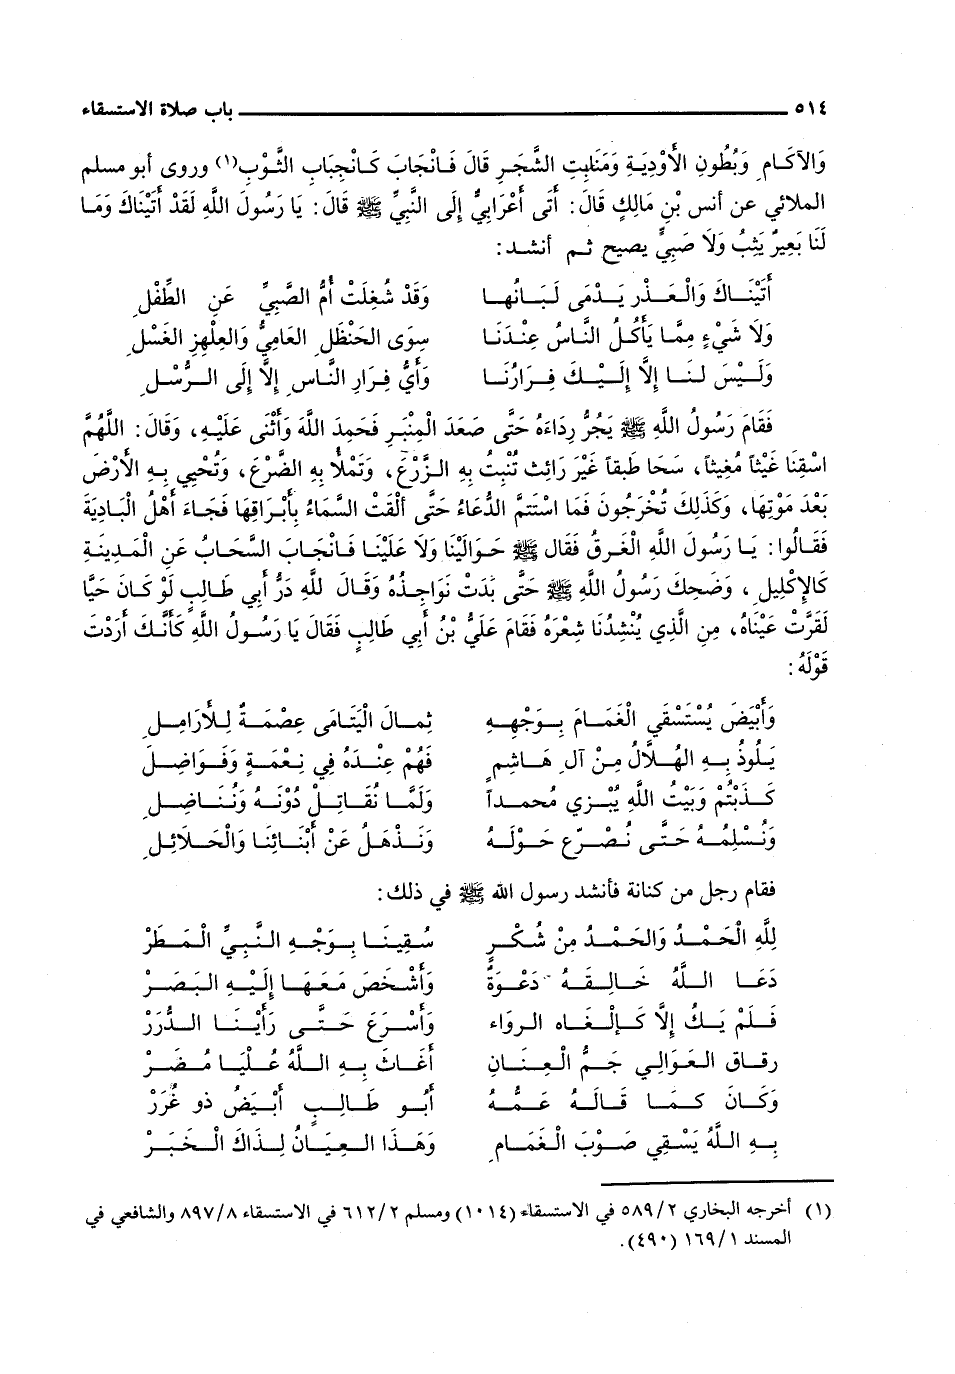 ٥١٤ باب صلاة الاستسقاء
وَالآكَامِ وَبُطُونِ الأَوْدِيَةِ وَمَنَابِتِ الشَّجَرِ قَالَ فَانْجَابَ كَانْجِبَابِ الثَّوْبِ(١) وروى أبو مسلم
الملائي عن أنس بْنِ مَالِكٍ قَالَ: أَتَى أَعْرَابِيٌّ إِلَى النَّبِيِّ ﷺ قَالَ: يَا رَسُولَ اللَّهِ لَقَدْ أَتَيْنَاكَ وَمَا
لَنَا بَعِيرٌ يَئِبُ وَلَا صَبِيٌّ يصيح ثم أنشد:
أَتَيْنَاكَ وَالْعَذْر يَدْمَى لَبَانُهَا وَقَدْ شُغِلَتْ أُمُّ الصَّبِيِّ عَنِ الطِّفْلِ
وَلَا شَيْءٍ مِمَّا يَأْكُلُ النَّاسُ عِنْدَنَا سِوَى الحَنْظَلِ العَامِيُّ وَالعِلْهِزِ الغَسْلِ
وَلَيْسَ لَنَا إِلَّا إِلَيْكَ فِرَارُنَا وَأَيُّ فِرَارِ النَّاسِ إِلَّا إِلَى الرُّسْلِ
فَقَامَ رَسُولُ اللَّهِ ﷺ يَجُرُّ رِدَاءَهُ حَتَّى صَعَدَ الْمِنْبَرِ فَحَمِدَ اللَّهَ وَأَثْنَى عَلَيْهِ، وَقَالَ: اللَّهُمَّ
اسْقِنَا غَيْثاً مُغِيثاً، سَحَا طَبقاً غَيْرَ رَائِثٍ تُنْبِتُ بِهِ الزَّرْعَ، وَتَمْلأُ بِهِ الضَّرْعَ، وَتُحْيِي بِهِ الأَرْضَ
بَعْدَ مَوْتِهَا، وَكَذَلِكَ تُخْرَجُونَ فَمَا اسْتَتَمَّ الدُّعَاءُ حَتَّى أَلْقَتْ السَّمَاءُ بِأَبْرَاقِهَا فَجَاءَ أَهْلُ الْبَادِيَةِ
فَقَالُوا: يَا رَسُولَ اللَّهِ الْغَرقُ فَقَالَ ﷺ حَوَالَيْنَا وَلَا عَلَيْنَا فَانْجَابَ السَّحَابُ عَنِ الْمَدِينَةِ
كَالإِكْلِيلِ، وَضَحِكَ رَسُولُ اللَّهِ ﷺ حَتَّى بَدَتْ نَوَاجِذُهُ وَقَالَ لِلَّهِ دَرُّ أَبِي طَالِبٍ لَوْ كَانَ حَيًّا
لَقَرَّتْ عَيْنَاهُ، مِنِ الَّذِي يُنْشِدُنَا شِعْرَهُ فَقَامَ عَلِيُّ بْنُ أَبِي طَالِبٍ فَقَالَ يَا رَسُولَ اللَّهِ كَأَنَّكَ أَرَدْتَ
قَوْلَهُ:
وَأَبْيَضَ يُسْتَسْقَى الْغَمَامَ بِوَجْهِهِ ثِمَالَ الْيَتَامَى عِصْمَةٌ لِلأَرَامِلِ
يَلُوذُ بِهِ الهُلَّالُ مِنْ آلِ هَاشِمٍ فَهُمْ عِنْدَهُ فِي نِعْمَةٍ وَفَوَاضِلَ
كَذَبْتُمْ وَبَيْتُ اللَّهِ يُبْزي مُحمداً وَلَمَّا نُقَاتِلْ دُونَهُ وَنُنَاضِلِ
وَنُسْلِمُهُ حَتَّى نُصْرّعِ حَوْلَهُ وَنَذْهَلُ عَنْ أَبْنَائِنَا وَالْحَلَائِلِ
فقام رجل من كنانة فأنشد رسول الله ﷺ في ذلك:
لِلَّهِ الْحَمْدُ وَالحَمْدُ مِنْ شُكْرٍ سُقِينَا بِوَجْهِ النَّبِيِّ الْمَطَرْ
دَعَا اللَّهُ خَالِقَهُ دَعْوَةً وَأَشْخَصَ مَعَهَا إِلَيْهِ البَصَرْ
فَلَمْ يَكُ إِلَّا كَإِلْغَاهِ الرواء وَأَسْرَعَ حَتَّى رَأَيْنَا الدُّرَرْ
رقاق العَوَالِي جَمُّ الْعِنَانِ أَغَاثَ بِهِ اللَّهُ عُلَيَا مُضَرْ
وَكَانَ كَمَا قَالَهُ عَمُّهُ أَبُو طَالِبٍ أَبْيَضُ ذو غُرَرْ
بِهِ اللَّهُ يَسْقِي صَوْبَ الْغَمَامِ وَهَذَا العِيَانُ لِذَاكَ الْخَبَرْ
(١) أخرجه البخاري ٥٨٩/٢ في الاستسقاء (١٠١٤) ومسلم ٦١٢/٢ في الاستسقاء ٨٩٧/٨ والشافعي في
المسند ١٦٩/١ (٤٩٠).